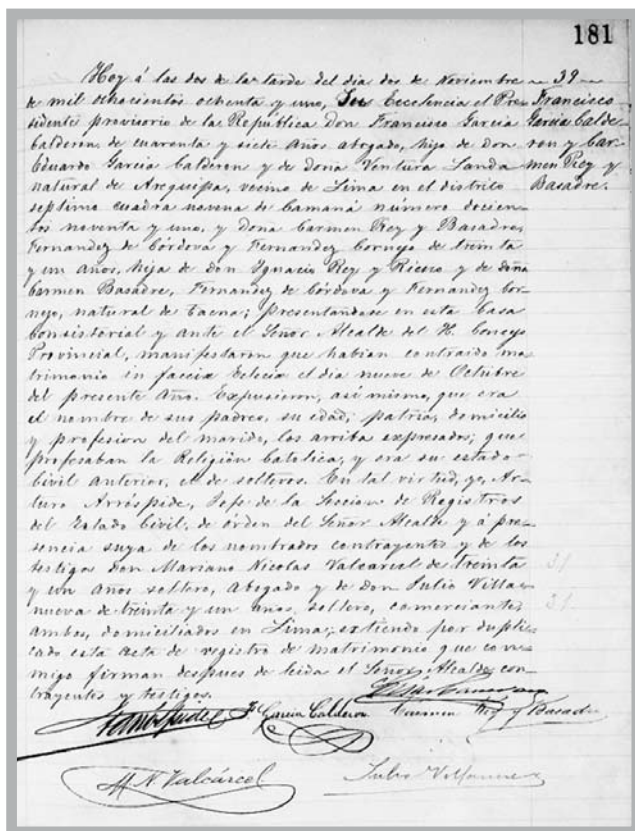 181
Hoy á las dos de la tarde del dia dos de Noviembre
de mil ochocientos ochenta y uno, Su Excelencia el Pre-
sidente provisorio de la República Don Francisco Garcia
Calderon de cuarenta y siete años abogado, hijo de don
Eduardo Garcia Calderon y de doña Ventura Landa
natural de Arequipa, vecino de Lima en el distrito
septimo cuadra novena de Camaná número docien-
tos noventa y uno, y doña Carmen Rey y Basadre,
Fernandez de Córdova y Fernandez Cornejo de treinta
y un años, hija de don Ignacio Rey y Riesco y de doña
Carmen Basadre, Fernandez de Córdova y Fernandez Cor-
nejo, natural de Tacna; presentandose en esta Casa
Consistorial y ante el Señor Alcalde del H. Concejo
Provincial, manifestaron que habian contraido ma-
trimonio in facciæ Eclecia el dia nueve de Octubre
del presente año. Expusieron, asi mismo, que era
el nombre de sus padres, su edad, patria, domicilio
y profesion del marido, los arriba expresados; que
profesaban la Religión Catolica, y era su estado
civil anterior, el de solteros. En tal virtud, yo, Ar-
turo Arróspide, Jefe de la Seccion de Registros
del Estado Civil, de órden del Señor Alcalde y á pre-
sencia suya de los nombrados contrayentes y de los
testigos Don Mariano Nicolas Valcarcel de treinta
y un años soltero, abogado y de Don Julio Villa-
nueva de treinta y un anos, soltero, comerciante,
ambos, domiciliados en Lima; extiendo por dupli-
cado esta acta de registro de matrimonio que con-
migo firman despues de leida el Señor Alcalde con-
trayentes y testigos.
39
Francisco
Garcia Calde-
ron y Car-
men Rey y
Basadre.
31
31
F. Garcia Calderon Carmen Rey y Basadre
M. N. Valcárcel
Julio Villanueva